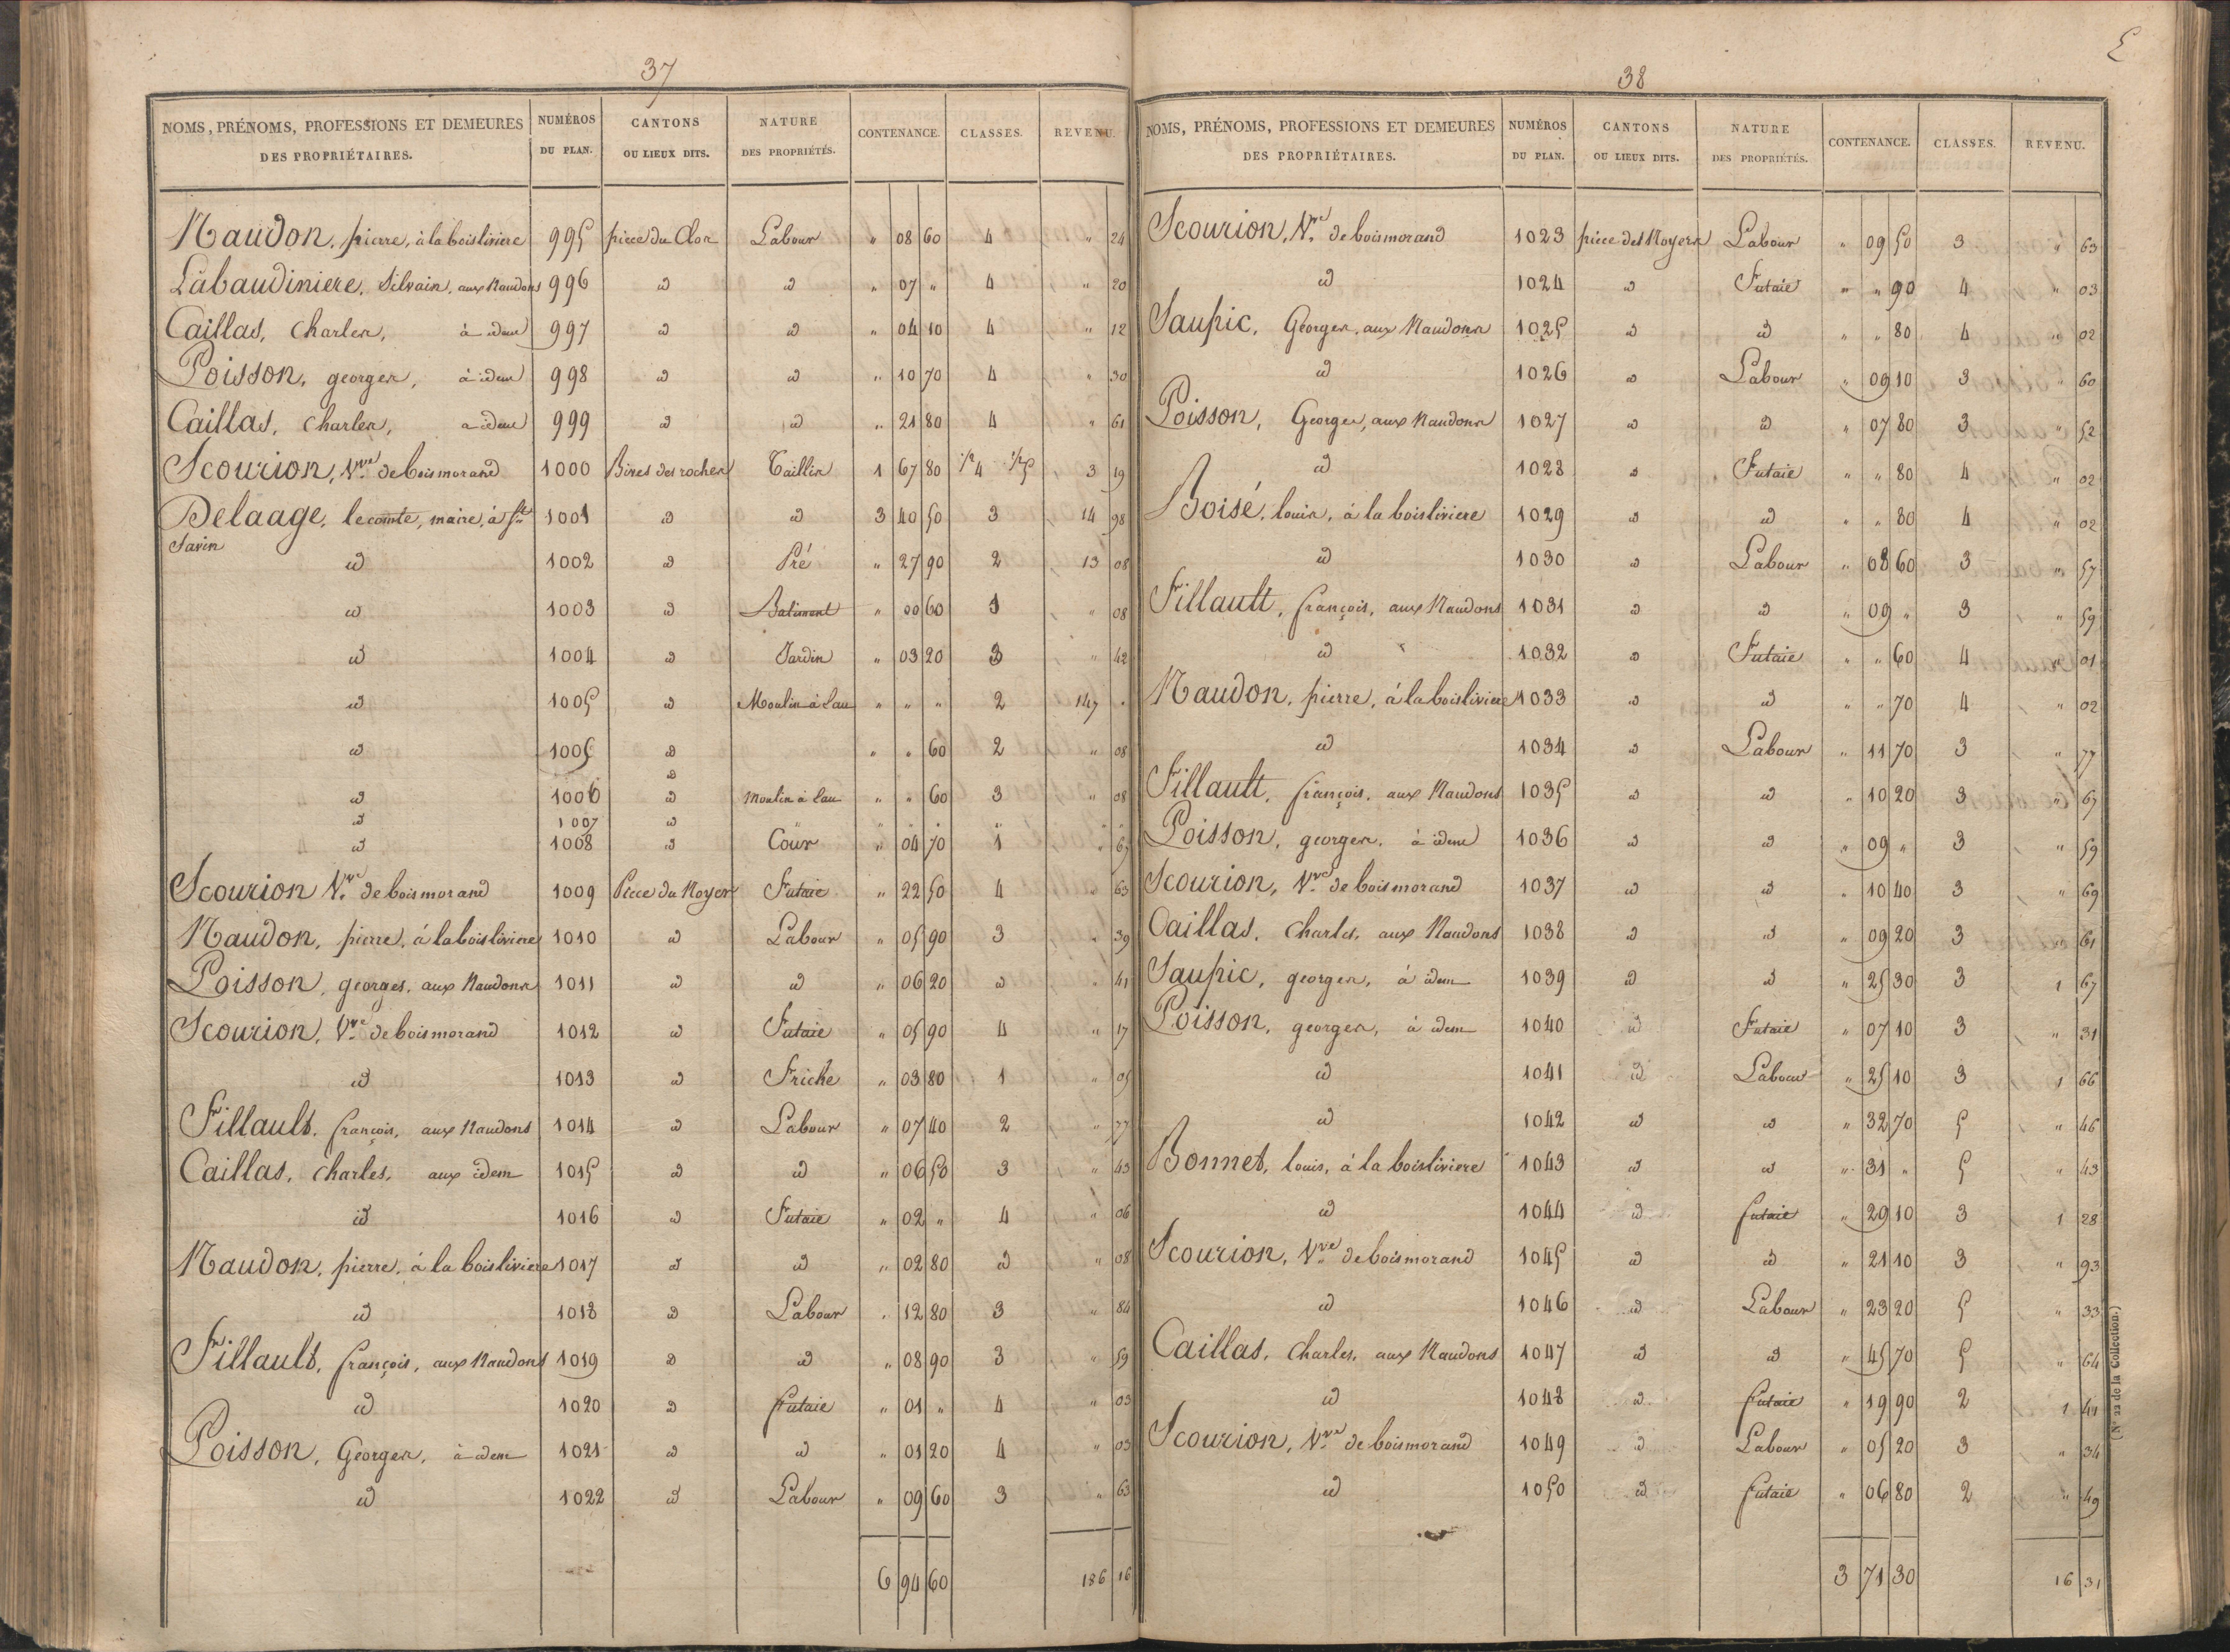 37
NOMS, PRÉNOMS, PROFESSIONS ET DEMEURES DES PROPRIÉTAIRES. NUMÉROS DU PLAN. CANTONS OU LIEUX DITS. NATURE DES PROPRIÉTÉS. CONTENANCE. CLASSES. REVENU.
Naudon, pierre, à la boisliviere 995 piece du Clos Labour " 08 60 4 " 24
Labaudiniere, Silvain, aux Naudons 996 id id " 07 " 4 " 20
Caillas, Charles, à idem 997 id id " 04 10 4 " 12
Poisson, georges, à idem 998 id id " 10 70 4 " 30
Caillas, Charles, a idem 999 id id " 21 80 4 " 61
Scourion, Vve de boismorand 1000 des rochers Taillis 1 67 80 1/2 4 1/2 5 3 19
Delaage, le comte, maire, à St 1001 id id 3 40 50 3 14 98
Savin
id 1002 id Pré " 27 90 2 13 08
id 1003 id Batiment " 00 60 1 " 08
id 1004 id Jardin " 03 20 3 " 42
id 1005 id Moulin à Eau " " " 2 147 "
id 1005 id " " 60 2 " 08
id
id 1006 id Moulin à Eau " " 60 3 " 08
id 1007 id " " " " " " "
id 1008 id Cour " 04 70 1 " 67
Scourion Vve de boismorand 1009 Piece du Noyer Futaie " 22 50 4 " 63
Naudon, pierre, à la boisliviere 1010 id Labour " 05 90 3 " 39
Poisson, georges, aux Naudons 1011 id id " 06 20 id " 41
Scourion, Vve de boismorand 1012 id Futaie " 05 90 4 " 17
id 1013 id Friche " 03 80 1 " 05
Fillault, françois, aux Naudons 1014 id Labour " 07 40 2 " 77
Caillas, Charles, aux idem 1015 id id " 06 50 3 " 43
id 1016 id Futaie " 02 " 4 " 06
Naudon, pierre, à la boisliviere 1017 id id " 02 80 id " 08
id 1018 id Labour " 12 80 3 " 84
Fillault, françois, aux Naudons 1019 id id " 08 90 3 " 59
id 1020 id futaie " 01 " 4 " 03
Poisson, Georges, à idem 1021 id id " 01 20 4 " 03
id 1022 id Labour " 09 60 3 " 63
6 94 60 186 16
38
NOMS, PRÉNOMS, PROFESSIONS ET DEMEURES DES PROPRIÉTAIRES. NUMÉROS DU PLAN. CANTONS OU LIEUX DITS. NATURE DES PROPRIÉTÉS. CONTENANCE. CLASSES. REVENU.
Scourion, Vve de boismorand 1023 piece des Noyers Labour " 09 50 3 " 63
id 1024 id Futaie " " 90 4 " 03
Saupic, Georges, aux Naudons 1025 id id " " 80 4 " 02
id 1026 id Labour " 09 10 3 " 60
Poisson, Georges, aux Naudons 1027 id id " 07 80 3 " 52
id 1028 id Futaie " " 80 4 " 02
Boisé, louis, à la boisliviere 1029 id id " " 80 4 " 02
id 1030 id Labour " 08 60 3 " 57
Fillault, françois, aux Naudons 1031 id id " 09 " 3 " 59
id 1032 id Futaie " " 60 4 " 01
Naudon, pierre, à la boisliviere 1033 id id " " 70 4 " 02
id 1034 id Labour " 11 70 3 " 77
Fillault, françois, aux Naudons 1035 id id " 10 20 3 " 67
Poisson, georges, à idem 1036 id id " 09 " 3 " 59
Scourion, Vve de boismorand 1037 id id " 10 40 3 " 69
Caillas, Charles, aux Naudons 1038 id id " 09 20 3 " 61
Saupic, georges, à idem 1039 id id " 25 30 3 1 67
Poisson, georges, à idem 1040 id Futaie " 07 10 3 " 31
id 1041 id Labour " 25 10 3 1 66
id 1042 id id " 32 70 5 " 46
Bonnet, louis, à la boisliviere 1043 id id " 31 " 5 " 43
id 1044 id futaie " 29 10 3 1 28
Scourion, Vve de boismorand 1045 id id " 21 10 3 " 93
id 1046 id Labour " 23 20 5 " 33
Caillas, Charles, aux Naudons 1047 id id " 45 70 5 " 64
id 1048 id futaie " 19 90 2 1 41
Scourion, Vve de boismorand 1049 id Labour " 05 20 3 " 34
id 1050 id futaie " 06 80 2 " 49
3 71 30 16 31
(N° 22 de la Collection.)